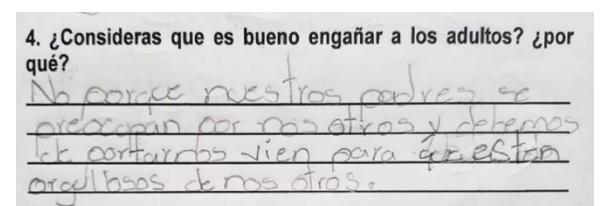 4. ¿Consideras que es bueno engañar a los adultos? ¿por
qué?
No porque nuestros padres se
preocupan por nos otros y debemos
de portarnos vien para que esten
orgullosos de nos otros.